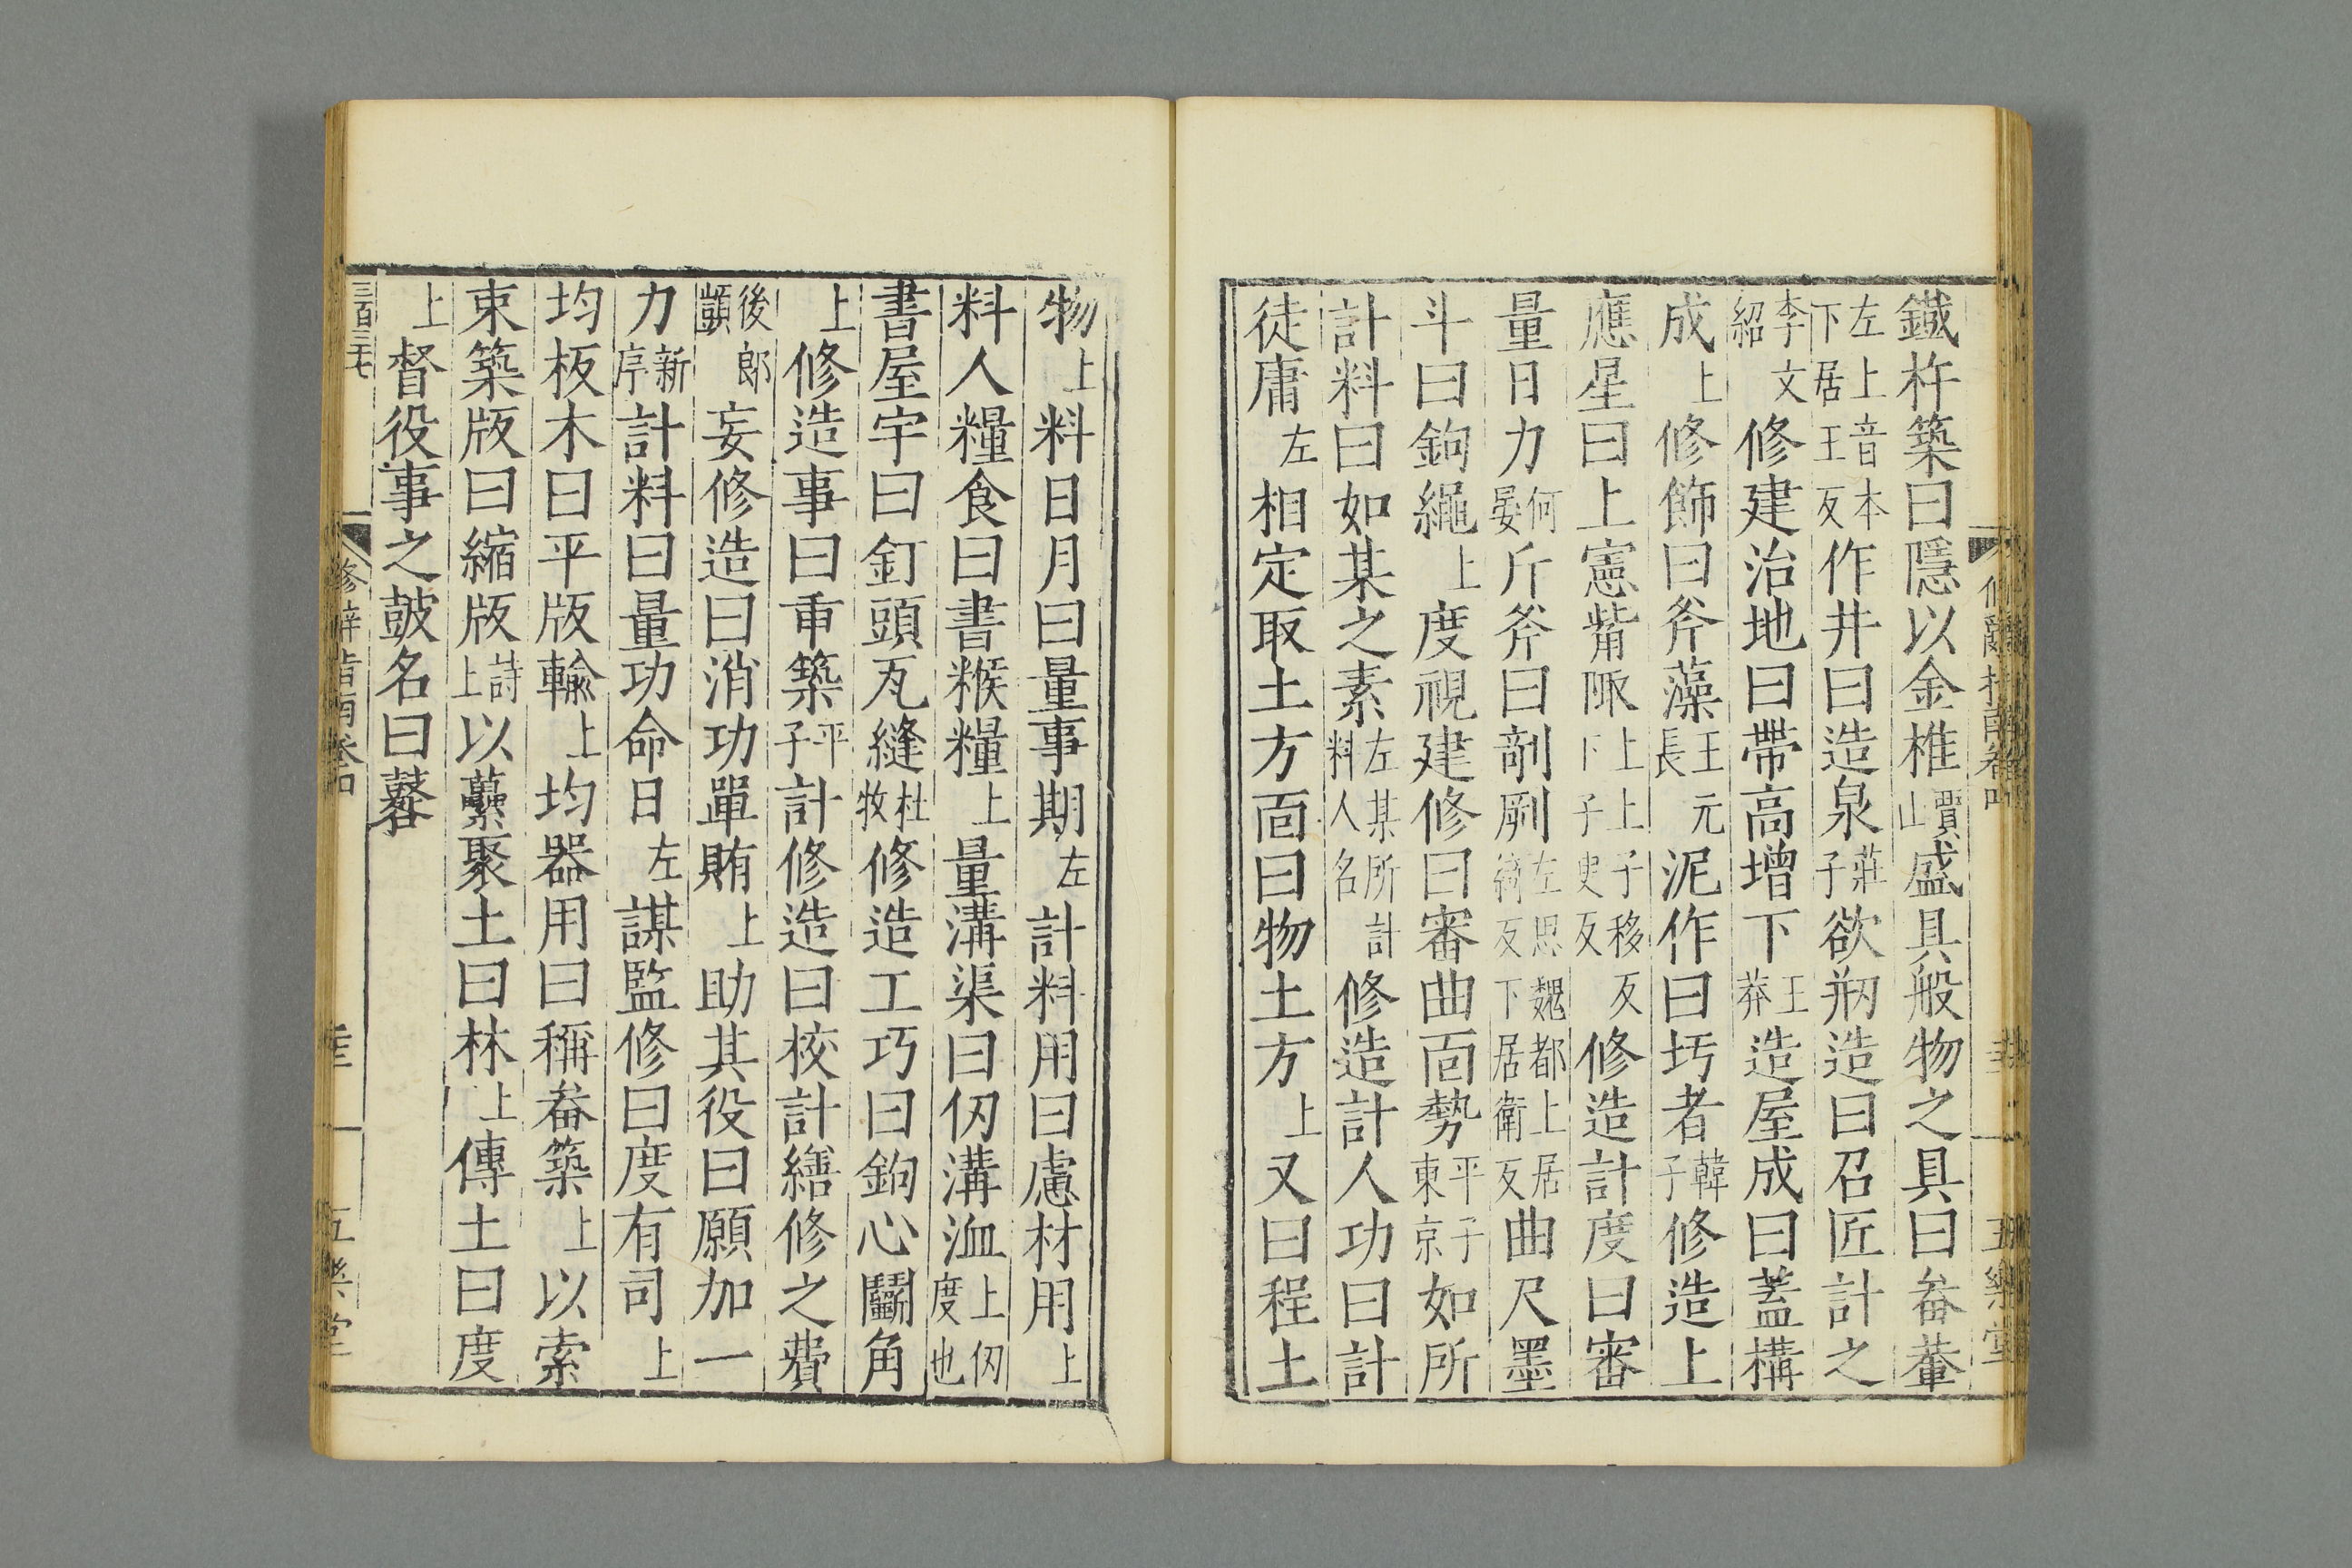 鐵杵築曰隱以金椎賈山盛具般物之具曰畚輂
左上音本下居王反作井曰造泉莊子欲剏造曰召匠計之
李文紹修建治地曰帶高增下王莽造屋成曰蓋構
成上修飾曰斧藻王元長泥作曰圬者韓子修造上
應星曰上憲觜陬上上子移反下子史反修造計度曰審
量日力何晏斤斧曰剞劂左思魏都上居綺反下居衛反曲尺墨
斗曰鉤繩上度視建修曰審曲面勢平子東京如所
計料曰如某之素左某所計料人名修造計人功曰計
徒庸左相定取土方面曰物土方上又曰程土
物上料日月曰量事期左計料用曰慮材用上
料人糧食曰書糇糧上量溝渠曰仞溝洫上仞度也
書屋宇曰釘頭瓦縫杜牧修造工巧曰鉤心鬭角
上修造事曰重築平子計修造曰校計繕修之費
後郎顗妄修造曰消功單賄上助其役曰願加一
力新序計料曰量功命日左謀監修曰度有司上
均板木曰平版輸上均器用曰稱畚築上以索
束築版曰縮版詩上以虆聚土曰林上傳土曰度
上督役事之鼓名曰鼛
三百三十七
修辭指南卷十四
五樂堂